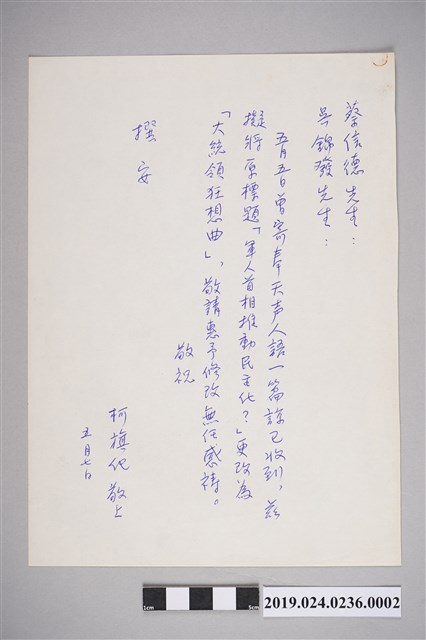 蔡信德先生:
吳錦發先生:
五月五日曾寄奉天声人語一篇諒已收到,茲
擬將原標題「軍人首相推動民主化?」更改為
「大統領狂想曲」,敬請惠予修改無任感禱。
敬祝
撰安
柯旗化敬上
五月七日
1cm
5cm
2019.024.0236.0002